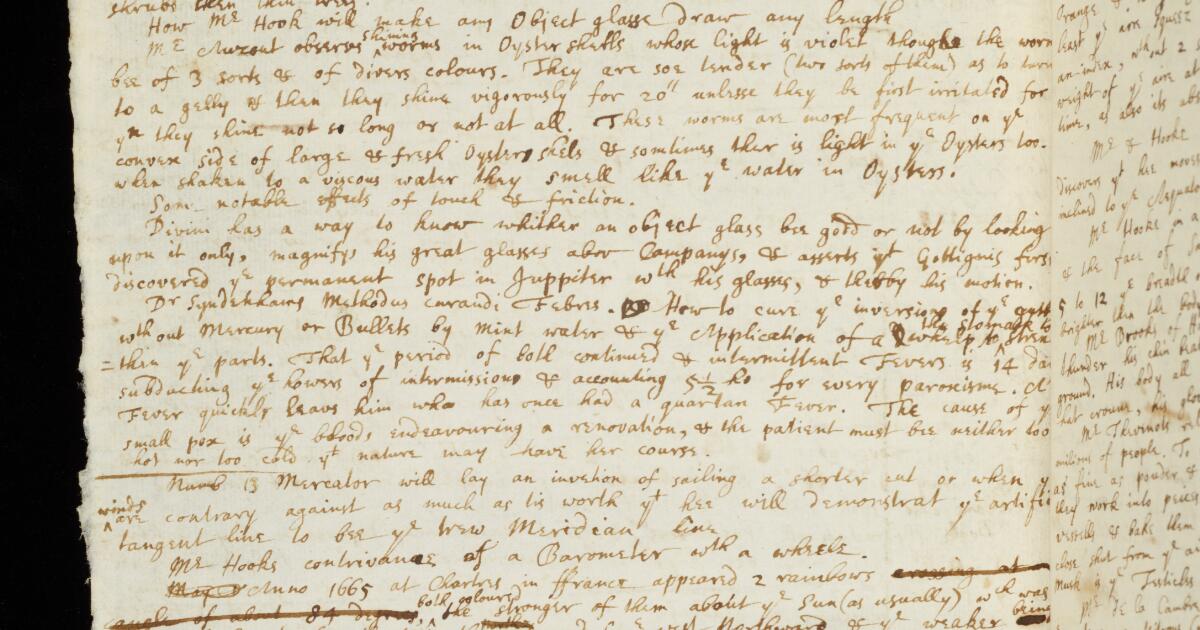 shrubs then this way.
How Mr Hook will make any Object glasse draw any length
Mr Auzout observes shining worms in Oyster shells whose light is violet though the worm
bee of 3 sorts & of divers colours. They are soe tender (two sorts of them) as to turn
to a gelly & then they shine vigorously for 20" unlesse they be first irritated for
yn they shine not so long or not at all. These worms are most frequent on ye
convex side of large & fresh Oyster shels & somtimes ther is light in ye Oysters too.
when shaken to a viscous water they smell like ye water in Oysters.
Som notable effects of touch & friction.
Divini has a way to know whither an object glass bee good or not by looking
upon it only, magnifys his great glasses abov Campanys, & asserts yt Gottignis first
discovered ye permanent spot in Juppiter wth his glasses, & therby his motion.
Dr Syndenhams Methodus curandi Febres. How to cure ye inversion of ye gutts
without Mercury or Bullets by mint water & ye Application of a whelp to the stomach to stren
=then ye parts. That ye period of both continued & intermittent Fevers is 14 da
subducting ye howers of intermissions & accounting 5½ ho for every paroxisme. A
Fever quickly leavs him who has once had a quartan Fever. The cause of y
small pox is ye bloods endeavouring a renovation, & the patient must bee neither too
hot nor too cold yt nature may have her course.
Numb 13 Mercator will lay an invention of sailing a shorter cut or when y
winds are contrary against as much as tis worth yt hee will demonstrat ye artifi
tangent line to bee ye trew Meridian line
Mr Hooks contrivance of a Barometer wth a wheele.
May Anno 1665 at Chartres in ffrance appeared 2 rainbows crossing at
angle of about 84 degrees, both coloured the stronger of them about ye Sun (as usually) wch was
Northward & ye weaker being
Orange
least ye are
an-index, without 2
weight of ye aire at
time, as also its
Mr Hooke
discovers yt hee
inclined to ye
Mr Hooks
& the face of
5 to 12 ye breadth
brighter then the
Mr Brooks of
thunder his chin
ground. His body all
hat crowne, his
Mr Thevenots
milions of people. To
as fine as pouder &
they work into
vessells & bake them
close shut from ye
Musk is ye Testicles
Mr de la